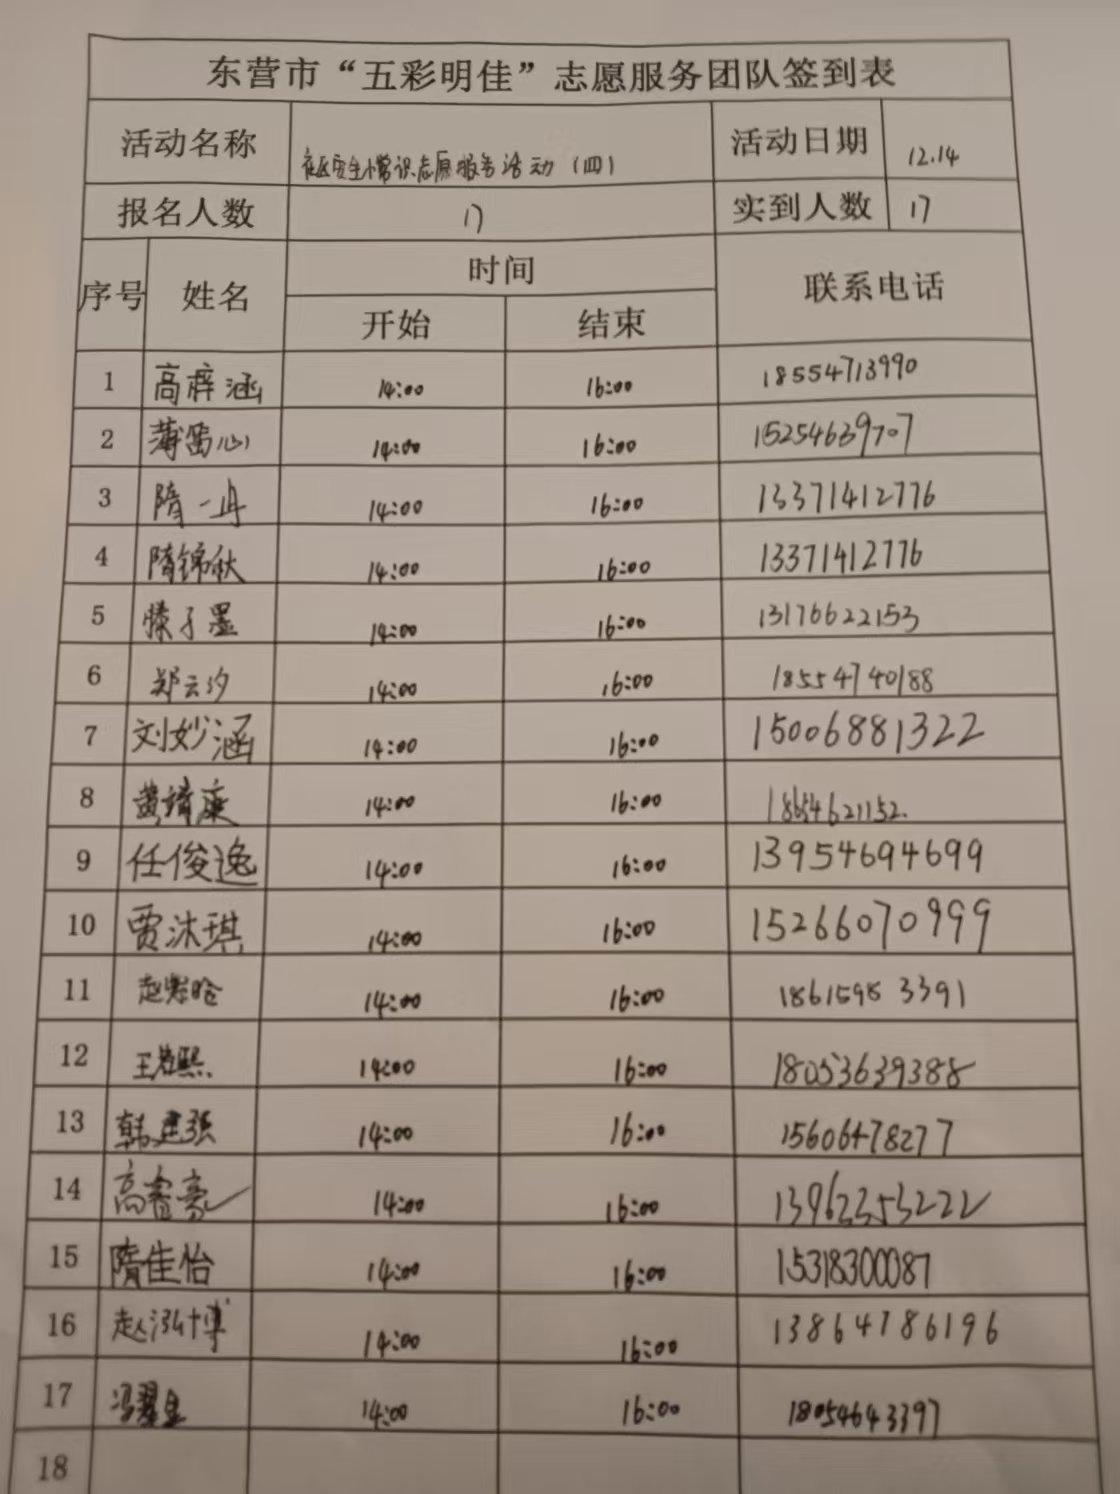 东营市“五彩明佳”志愿服务团队签到表
活动名称 社区安全小常识志愿服务活动（四） 活动日期 12.14
报名人数 17 实到人数 17
序号 姓名 时间 联系电话
开始 结束
1 高梓涵 14:00 16:00 18554713990
2 薄 心 14:00 16:00 15254639707
3 隋一丹 14:00 16:00 13371412776
4 隋锦秋 14:00 16:00 13371412776
5 子墨 14:00 16:00 13176622153
6 郑云汐 14:00 16:00 18554740188
7 刘妙涵 14:00 16:00 15006881322
8 黄靖 14:00 16:00 18654621152
9 任俊逸 14:00 16:00 13954694699
10 贾沐琪 14:00 16:00 15266070999
11 赵 晗 14:00 16:00 18615983391
12 王 熙 14:00 16:00 18053639388
13 韩建强 14:00 16:00 15606478277
14 高睿豪 14:00 16:00 13962353222
15 隋佳怡 14:00 16:00 15318300087
16 赵泓博 14:00 16:00 13864786196
17 冯 14:00 16:00 18054643397
18